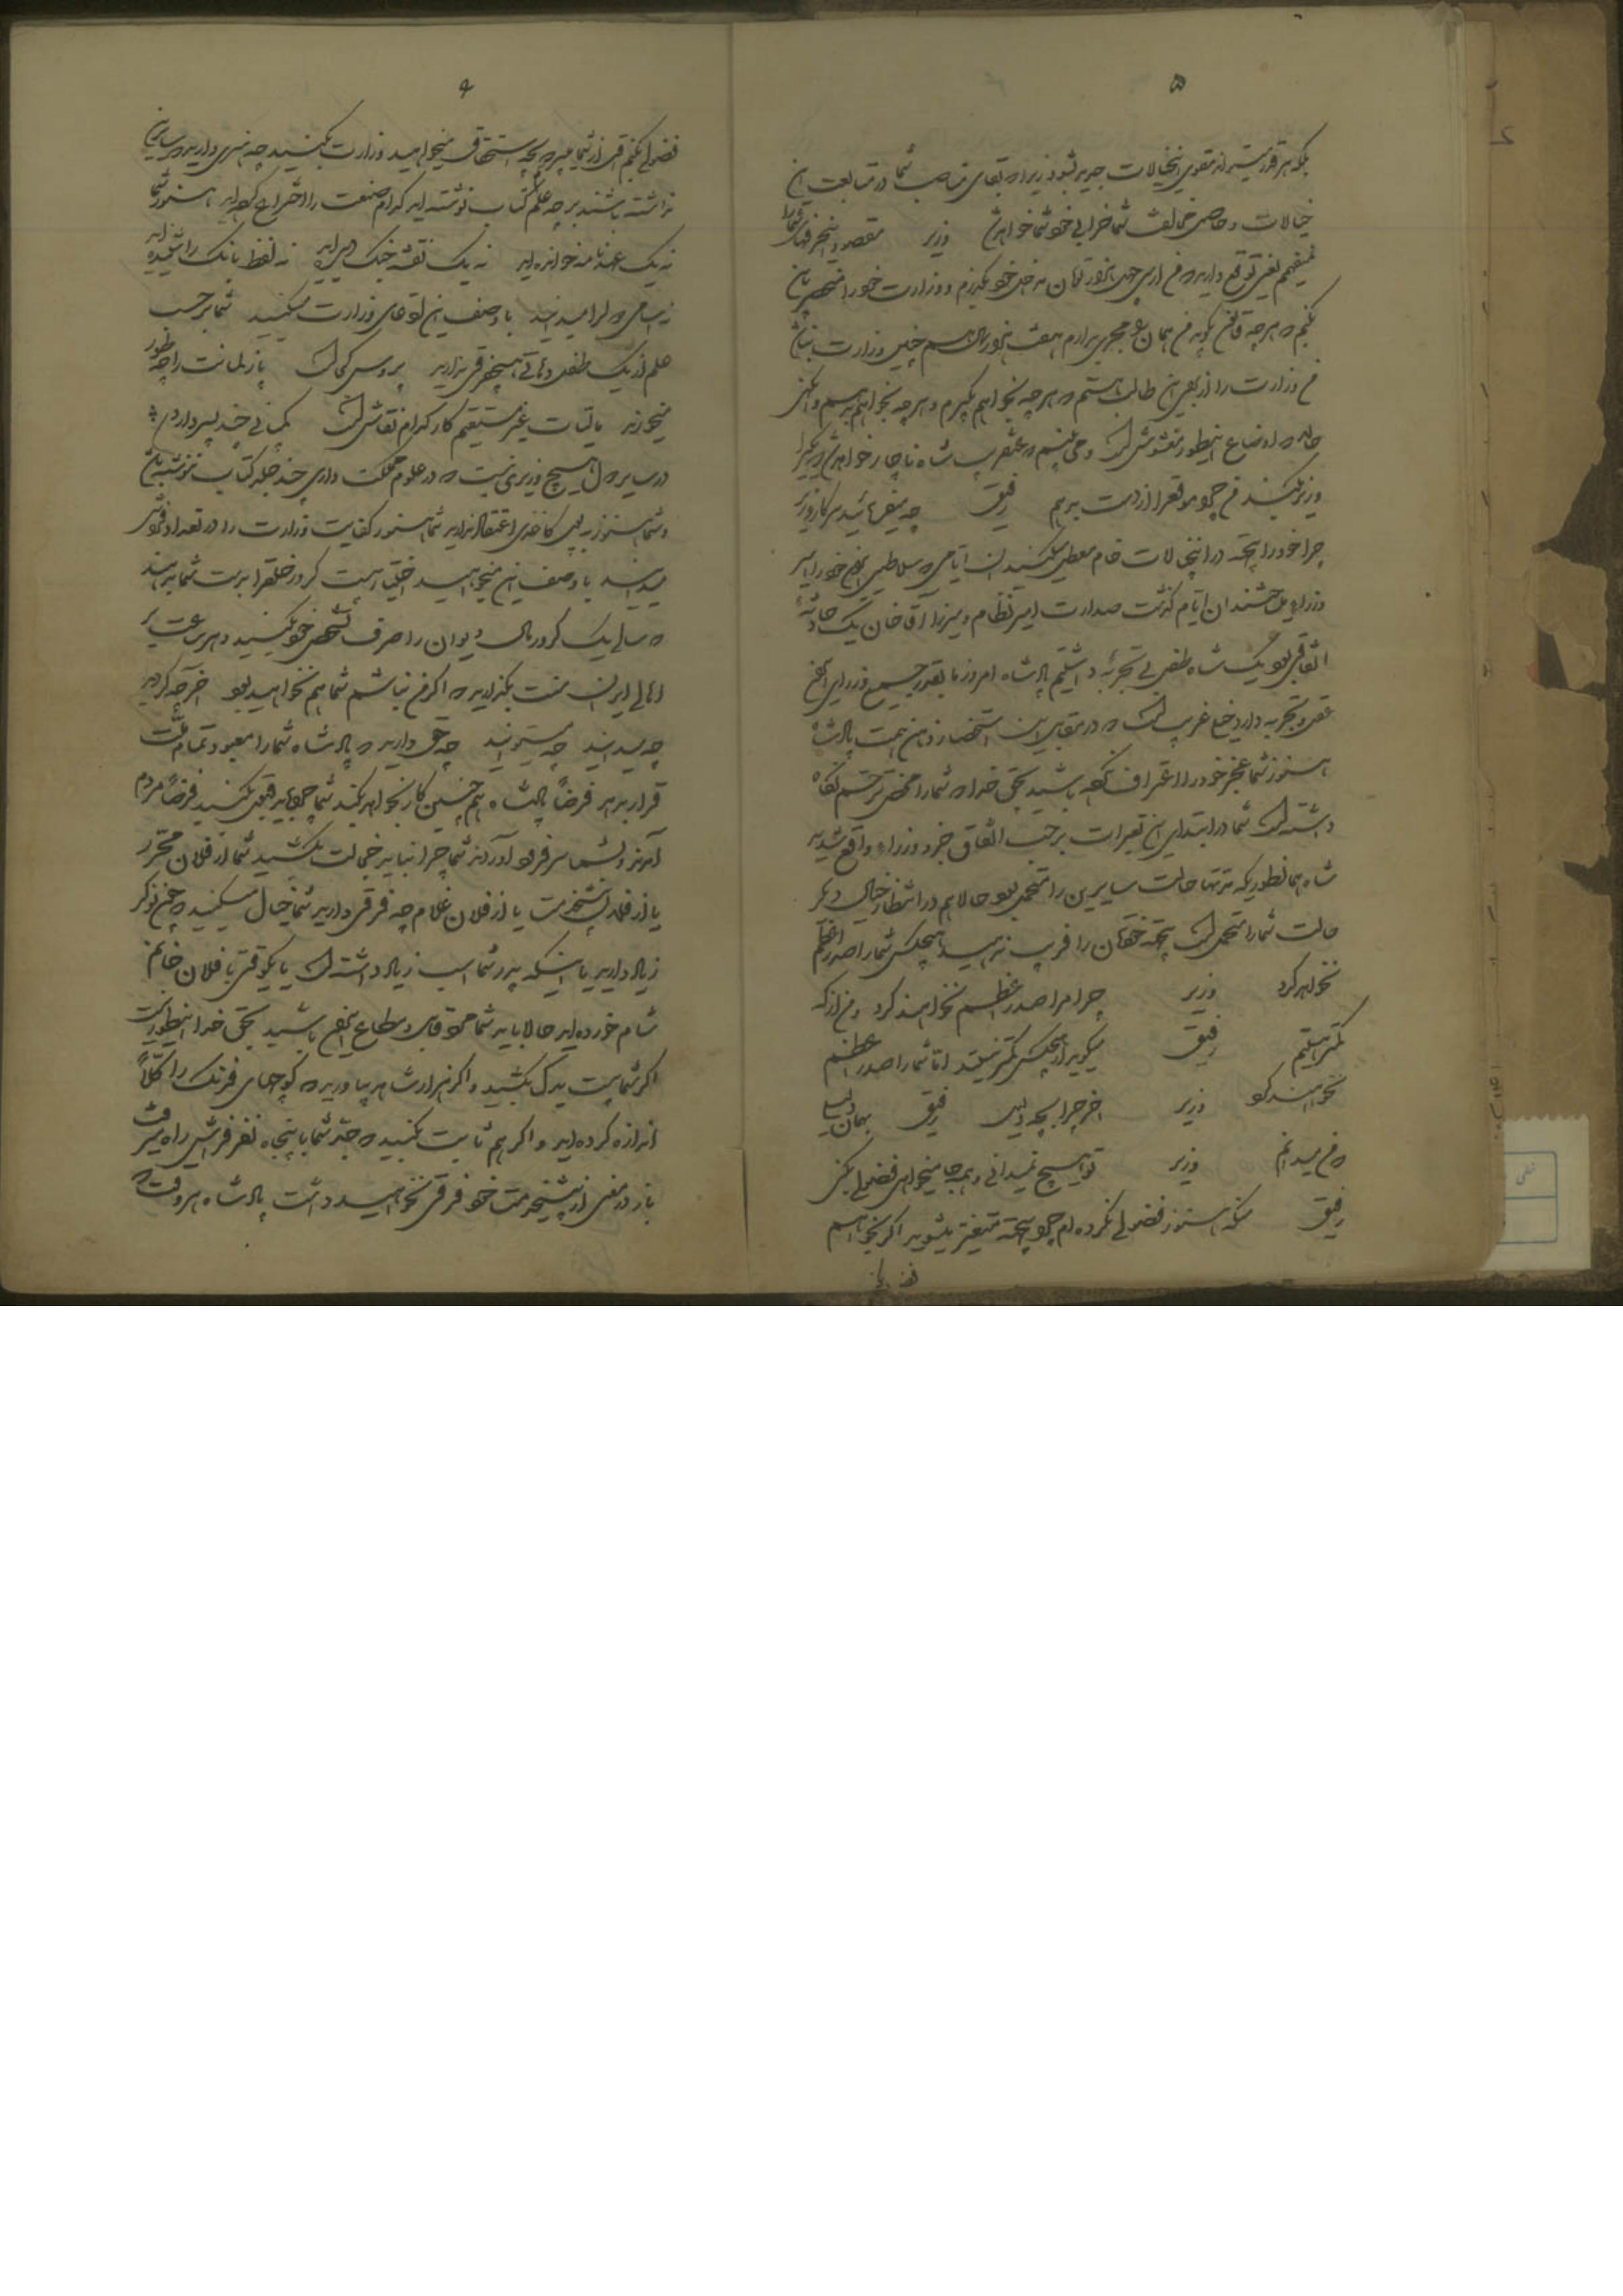 ۵
بلکه هر قدر بیشتر از مقوی این خیالات جدید بشوید زیرا که بقای مناصب شما در متابعت این
خیالات و حاصل مخالفت شما خرابی خود شما خواهد شد وزیر مقصود این حرفهای شما را
نمیفهمم یعنی توقع دارید که من از این
بکنم که هر چه قانون بگوید من همان را مجری بدارم هفت کرور سال هم چنین وزارت نباشد
من وزارت را از برای این طالب هستم که هر چه بخواهم بگیرم و هر چه بخواهم بدهم
حالا که اوضاع اینطور مغشوش است و می بینم که عنقریب شاه ناچار خواهد شد که یکی را
وزیر بکند من چرا موقع را از دست بدهم رفیق چه میفرمائید سرکار وزیر
چرا خود را بیجهت در این خیالات خام معطل میکنید آن ایامی که سلاطین ایران خود را اسیر
وزرا میساختند آن ایام گذشت صدارت امیر نظام و میرزا آقا خان یک حادثه
اتفاقی بود یک شاه طفل بی تجربه داشتیم پادشاه امروز ما بقدر جمیع وزرای ایران
عقل و تجربه دارد خیلی غریب است که در مقابل این استحضار و این همت پادشاه
هنوز شما عجز خود را اعتراف نکرده باشید بحق خدا که شما را محض ترحم نگاه
داشته است شما در ابتدای این تغییرات بر حسب اتفاق جزو وزراء واقع شدید
شاه همانطوریکه مدتها حالت سایرین را متحمل بود حالا هم در انتظار خیال دیگر
حالت شما را متحمل است بیجهت خودتان را فریب ندهید هیچکس شما را صدر اعظم
نخواهد کرد وزیر چرا مرا صدر اعظم نخواهند کرد من از که
کمتر هستم رفیق میگویید از هیچکس کمتر نیستید اما شما را صدر اعظم
نخواهند کرد وزیر آخر چرا بچه دلیل رفیق بهمان دلیل
که من میدانم وزیر تو هیچ نمیدانی و بیجا میخواهی فضولی بکنی
رفیق منکه هنوز فضولی نکرده ام چرا بیجهت متغیر میشوید اگر بخواهم
فضولی
۶
فضولی بکنم قبل از شما میپرسم که بچه استحقاق میخواهید وزارت بکنید چه هنری دارید که سایرین
نداشته باشند بر چه علم کتاب نوشته اید کدام صنعت را اختراع کرده اید هنوز شما
نه یک عهدنامه خوانده اید نه یک نقشه جنگ دیده اید نه لفظ بانک را شنیده اید
با وصف این ادعای وزارت میکنید شما بر حسب
علم از یک طفل دهاتی هیچ فرق ندارید پروس کجاست پارلمانت را چه طور
میخورند مالیات غیر مستقیم کار کدام نقاش است کمپانی چند پسر دارد
در سایر دول هیچ وزیری نیست که در علوم مملکت داری چند جلد کتاب ننوشته باشد
و شما هنوز به این کاغذی اعتقاد ندارید شما هنوز کفایت وزارت را در تعداد فراش
میدانید با وصف این میخواهید اختیار بیست کرور خلق را بدست شما بدهند
که سالی یک کرور مال دیوان را صرف تشخص خود بکنید و هر ساعت بر
اهالی ایران منت بگذارید که اگر من نباشم شما هم نخواهید بود آخر چه کرده اید
چه میدانید چه میتوانید چه حق دارید که پادشاه شما را معبود تمام ملت
قرار بدهد فرضاً پادشاه هم چنین کار بخواهد بکند شما چرا باید قبول بکنید فرضاً مردم
آمدند و بشما سر فرود آوردند شما چرا نباید خجالت بکشید شما از فلان محرر
یا از فلان پیشخدمت یا از فلان غلام چه فرقی دارید شما خیال میکنید که چون نوکر
زیاد دارید یا اینکه پدر شما اسب زیاد داشته است یا یکوقتی با فلان خانم
شام خورده اید حالا باید شما مولا و مطاع ایران باشید بحق خدا اینطور نیست
اگر شما بیست یدک بکشید و اگر هزار شاهد بیاورید که کوچهای فرنگ را کلاً
اندازه کرده اید و اگر هم ثابت بکنید که جد شما با پنجاه نفر فراش راه میرفت
باز در معنی از پیشخدمت خود فرقی نخواهید داشت پادشاه هر وقت که